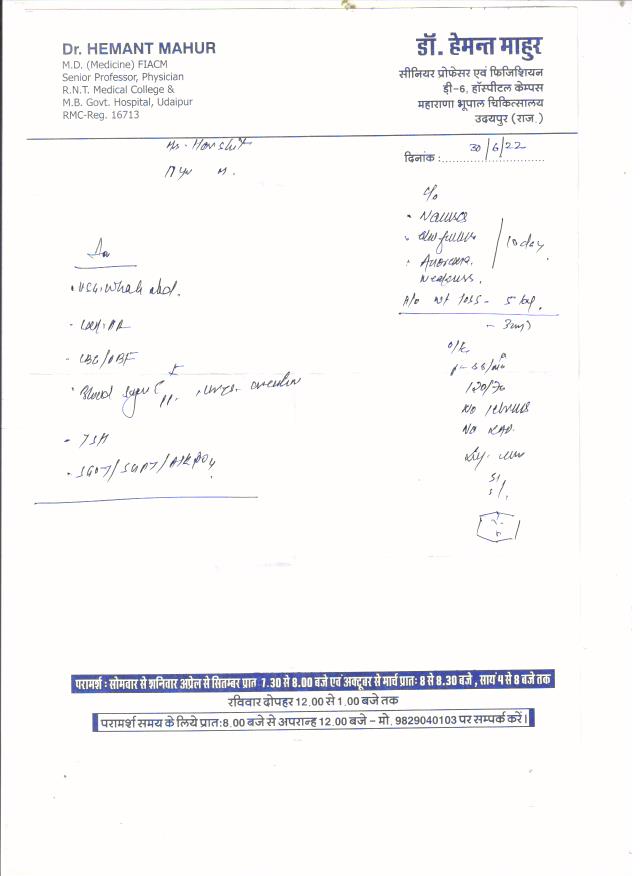 Dr. HEMANT MAHUR
M.D. (Medicine) FIACM
Senior Professor, Physician
R.N.T. Medical College &
M.B. Govt. Hospital, Udaipur
RMC-Reg. 16713
डॉ. हेमन्त माहुर
सीनियर प्रोफेसर एवं फिजिशियन
डी-6, हॉस्पीटल केम्पस
महाराणा भूपाल चिकित्सालय
उदयपुर (राज.)
दिनांक : 30/6/22
c/o
• Nausea
10 day
Weakness.
H/o wt loss - 5 kg.
O/E
120/70
No icterus
No LAD.
• USG. Whole abd.
- CBC/PBF
• Blood sugar
- TSH
- SGOT/SGPT/Alk PO4
परामर्श : सोमवार से शनिवार अप्रेल से सितम्बर प्रात 7.30 से 8.00 बजे एवं अक्टूबर से मार्च प्रातः 8 से 8.30 बजे , सायं 4 से 8 बजे तक
रविवार दोपहर 12.00 से 1.00 बजे तक
परामर्श समय के लिये प्रात:8.00 बजे से अपरान्ह 12.00 बजे – मो. 9829040103 पर सम्पर्क करें।